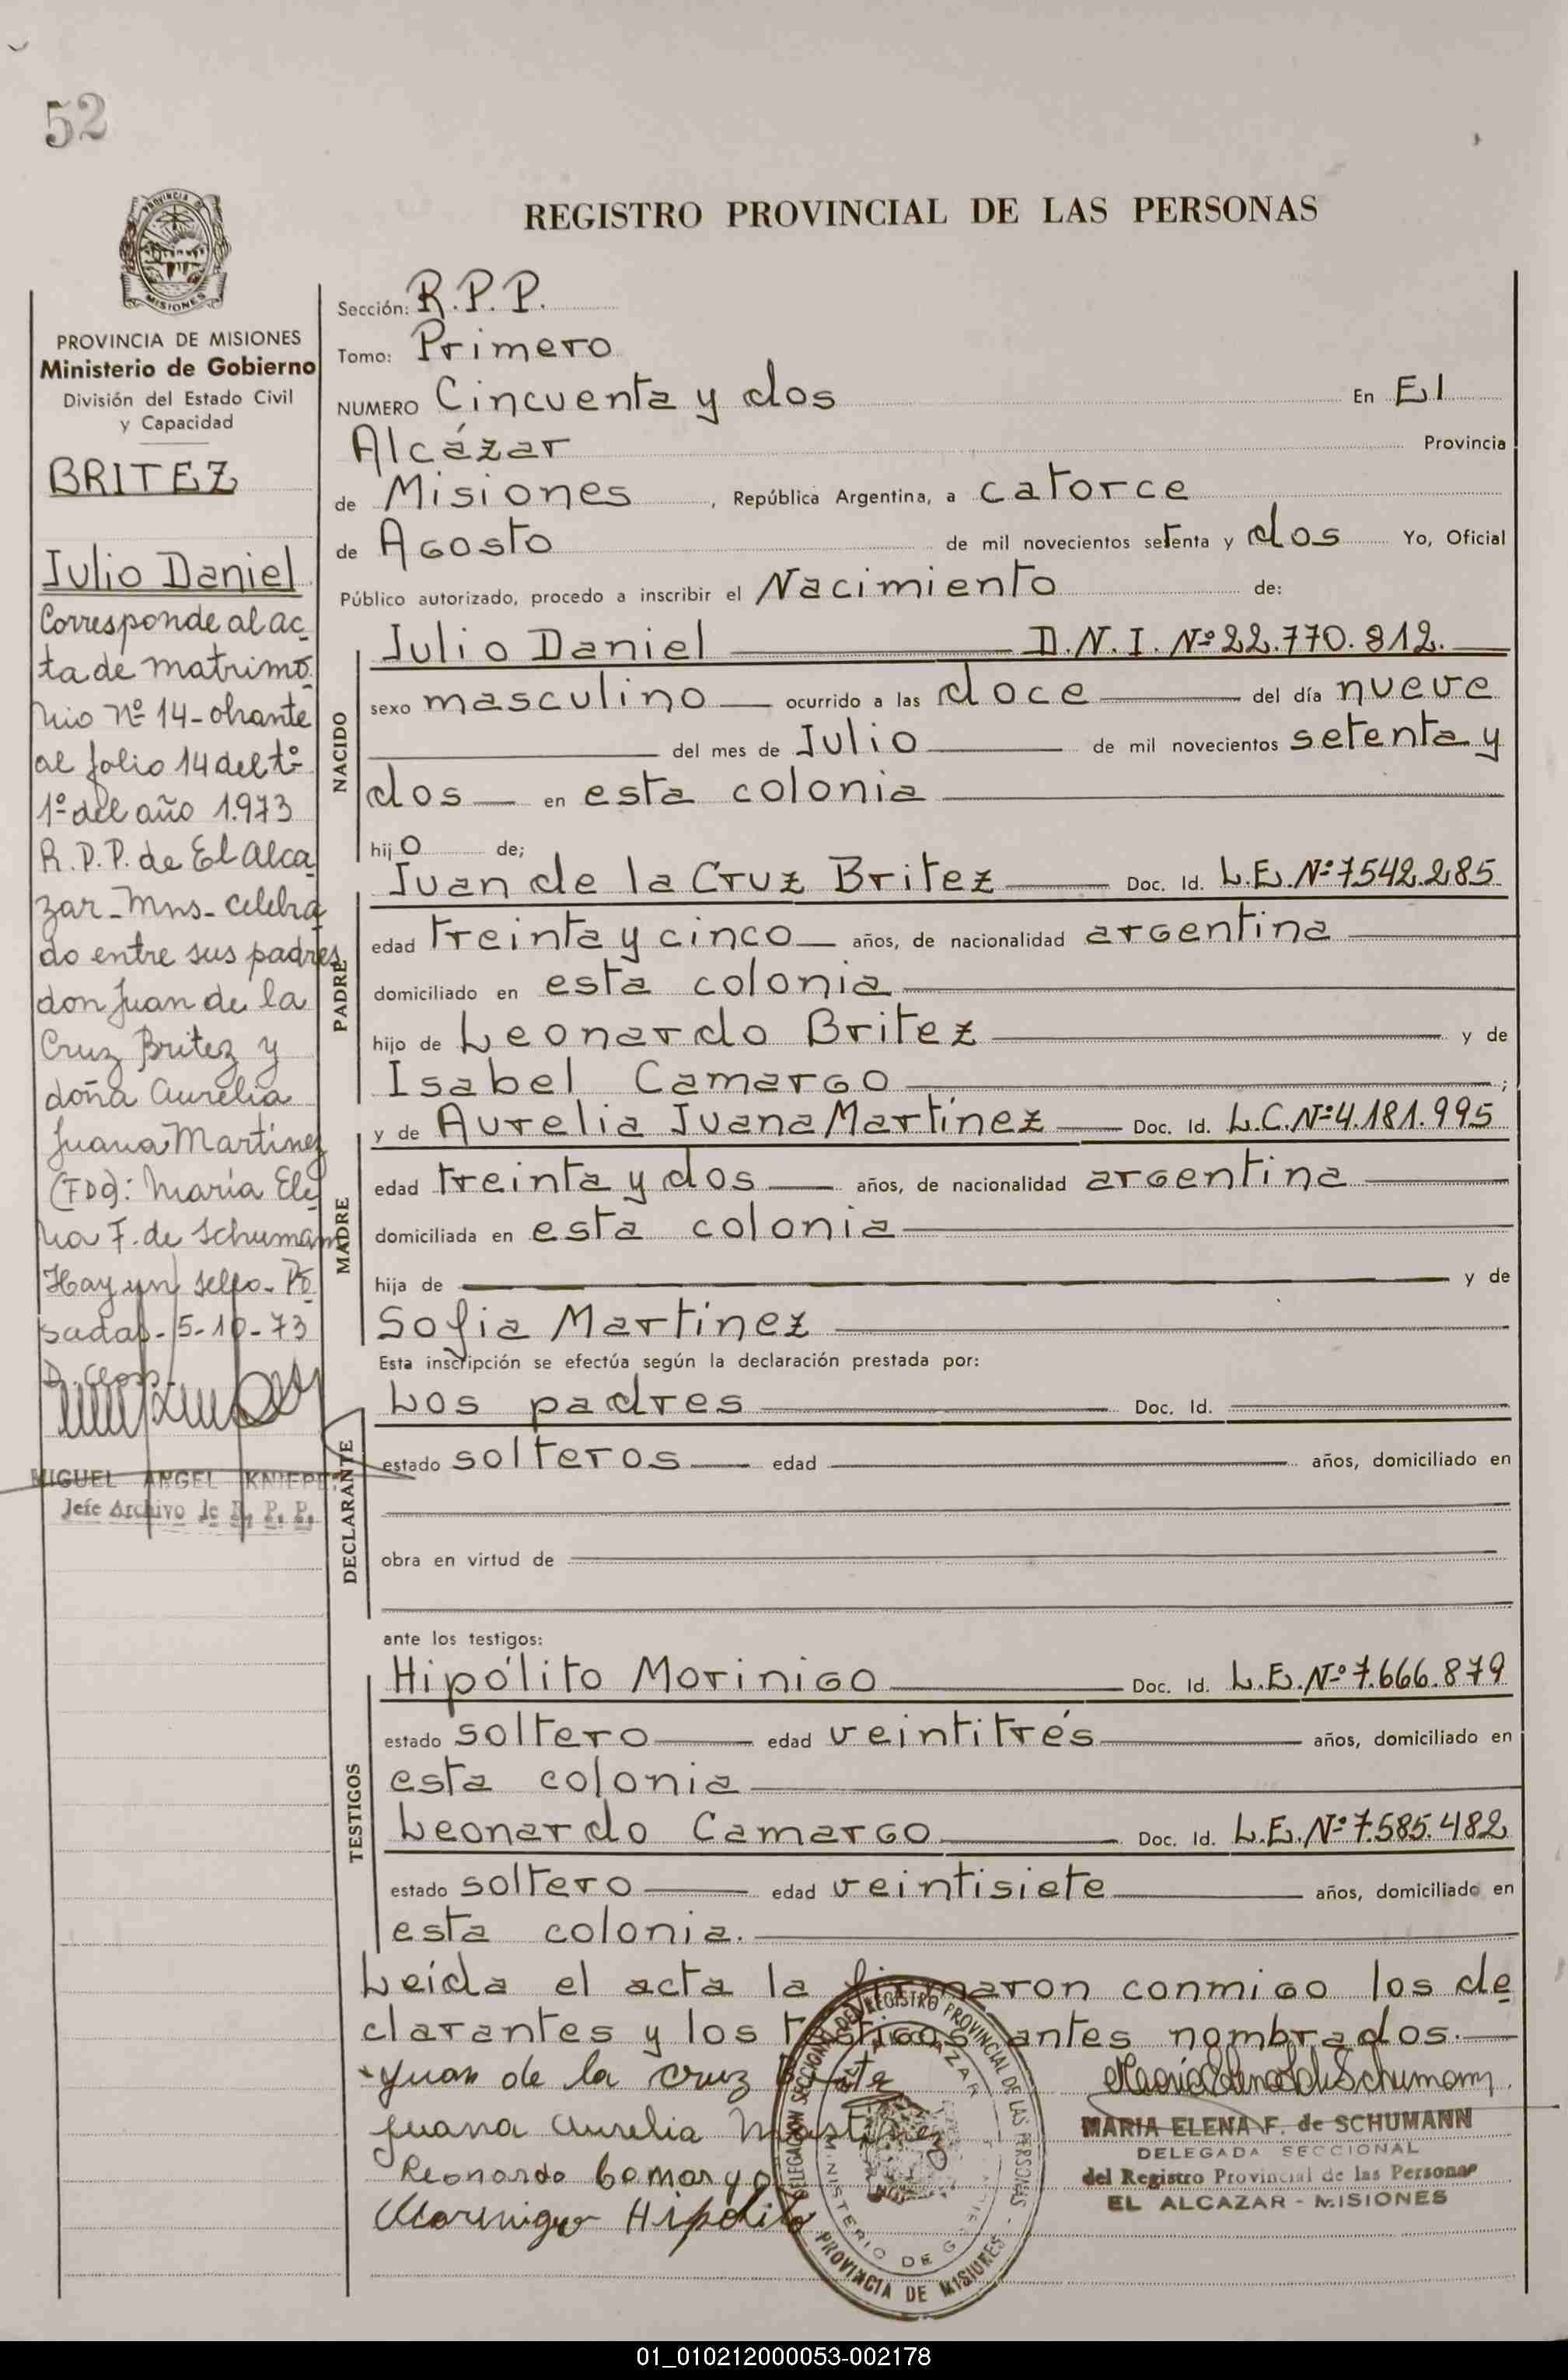 52
PROVINCIA DE
MISIONES
PROVINCIA DE MISIONES
Ministerio de Gobierno
División del Estado Civil
y Capacidad
BRITEZ
Julio Daniel
Corresponde al ac
ta de matrimo
nio Nº 14 - obrante
al folio 14 del tº
1º del año 1.973
R.P.P. de El Alca
zar - Mns - celebra
do entre sus padres
don Juan de la
Cruz Britez y
doña Aurelia
Juana Martinez
(FDO): María Ele
na F. de Schumann
Hay un sello - Po
sadas - 5-10-73
MIGUEL ANGEL
Jefe Archivo de R. P. P.
REGISTRO PROVINCIAL DE LAS PERSONAS
Sección: R.P.P.
Tomo: Primero
NUMERO Cincuenta y dos En El
Alcázar Provincia
de Misiones, República Argentina, a catorce
de Agosto de mil novecientos setenta y dos Yo, Oficial
Público autorizado, procedo a inscribir el Nacimiento de:
NACIDO
Julio Daniel D.N.I. Nº 22.770.812.
sexo masculino ocurrido a las doce del día nueve
del mes de Julio de mil novecientos setenta y
dos en esta colonia
hijo de;
PADRE
Juan de la Cruz Britez Doc. Id. L.E. Nº 7542.285
edad treinta y cinco años, de nacionalidad argentina
domiciliado en esta colonia
hijo de Leonardo Britez y de
Isabel Camargo ;
MADRE
y de Aurelia Juana Martínez Doc. Id. L.C. Nº 4.181.995
edad treinta y dos años, de nacionalidad argentina
domiciliada en esta colonia
hija de y de
Sofia Martínez
Esta inscripción se efectúa según la declaración prestada por:
DECLARANTE
Los padres Doc. Id.
estado solteros edad años, domiciliado en
obra en virtud de
ante los testigos:
TESTIGOS
Hipólito Morinigo Doc. Id. L.E. Nº 7.666.879
estado soltero edad veintitrés años, domiciliado en
esta colonia
Leonardo Camargo Doc. Id. L.E. Nº 7.585.482
estado soltero edad veintisiete años, domiciliado en
esta colonia.
Leída el acta la firmaron conmigo los de
clarantes y los testigos antes nombrados.
Juan de la Cruz Brites
Juana Aurelia Martinez
Leonardo Camargo
Morinigo Hipolito
DELEGACION SECCIONAL DEL REGISTRO PROVINCIAL DE LAS PERSONAS - PROVINCIA DE MISIONES
MINISTERIO DE
María Elena F. de Schumann
MARIA ELENA F. de SCHUMANN
DELEGADA SECCIONAL
del Registro Provincial de las Personas
EL ALCAZAR - MISIONES
01_010212000053-002178